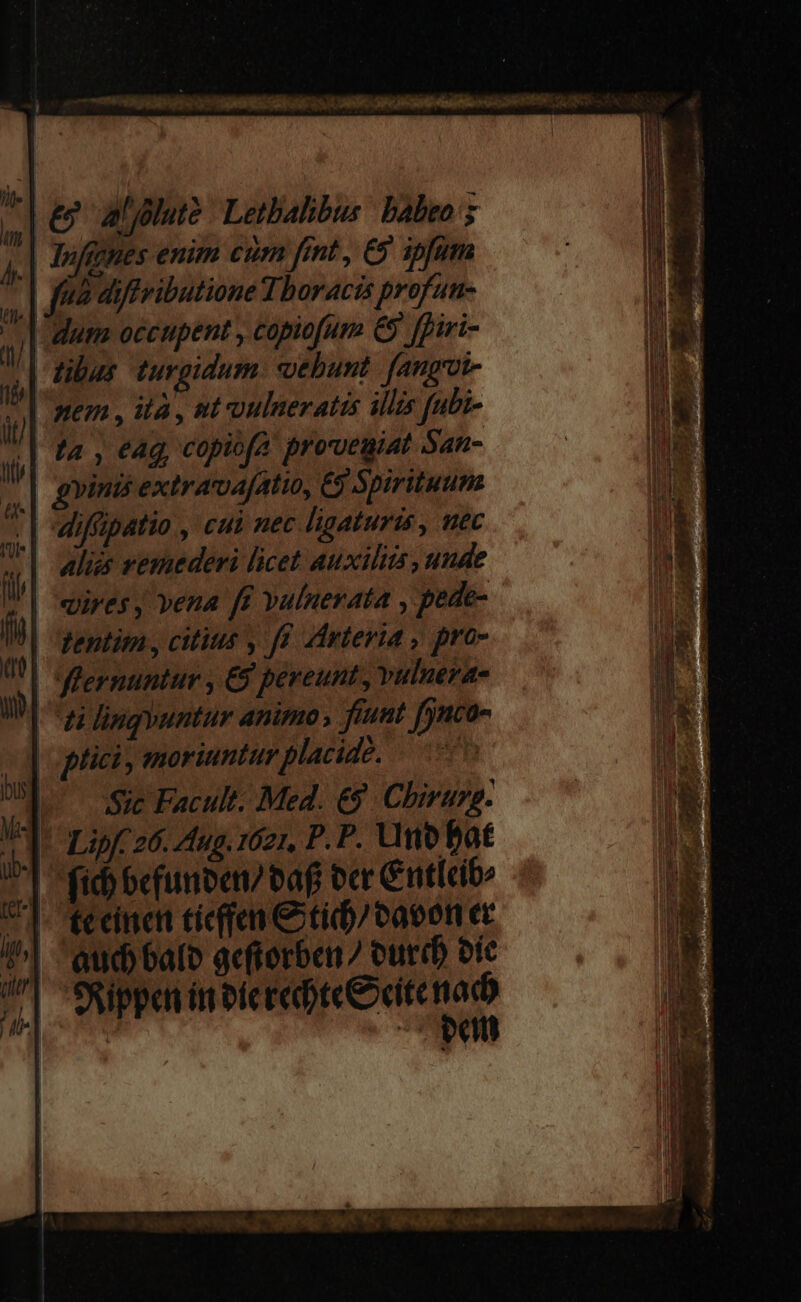 & absolutè Lethalibus habeo;
Insignes enim cùm sint, & ipsum
suâ distributione Thoracis profun-
dum occupent, copiosum & spiri-
tibus turgidum vehunt sangvi-
nem, ità, ut vulneratis illis subi-
ta, eaq; copiosa proveniat San-
gvinis extravasatio, & Spirituum
dissipatio, cui nec ligaturis, nec
aliis remederi licet auxiliis, unde
vires, vena si vulnerata, pede-
tentim, citius, si Arteria, pro-
sternuntur, & pereunt, vulnera-
ti linqvuntur animo, fiunt synco-
ptici, moriuntur placidè.
Sic Facult. Med. & Chirurg.
Lips. 26. Aug. 1621, P. P. Und hat
sich befunden/ daß der Entleib-
te einen tieffen Stich/ davon er
auch bald gestorben/ durch die
Rippen in die rechte Seite nach
dem